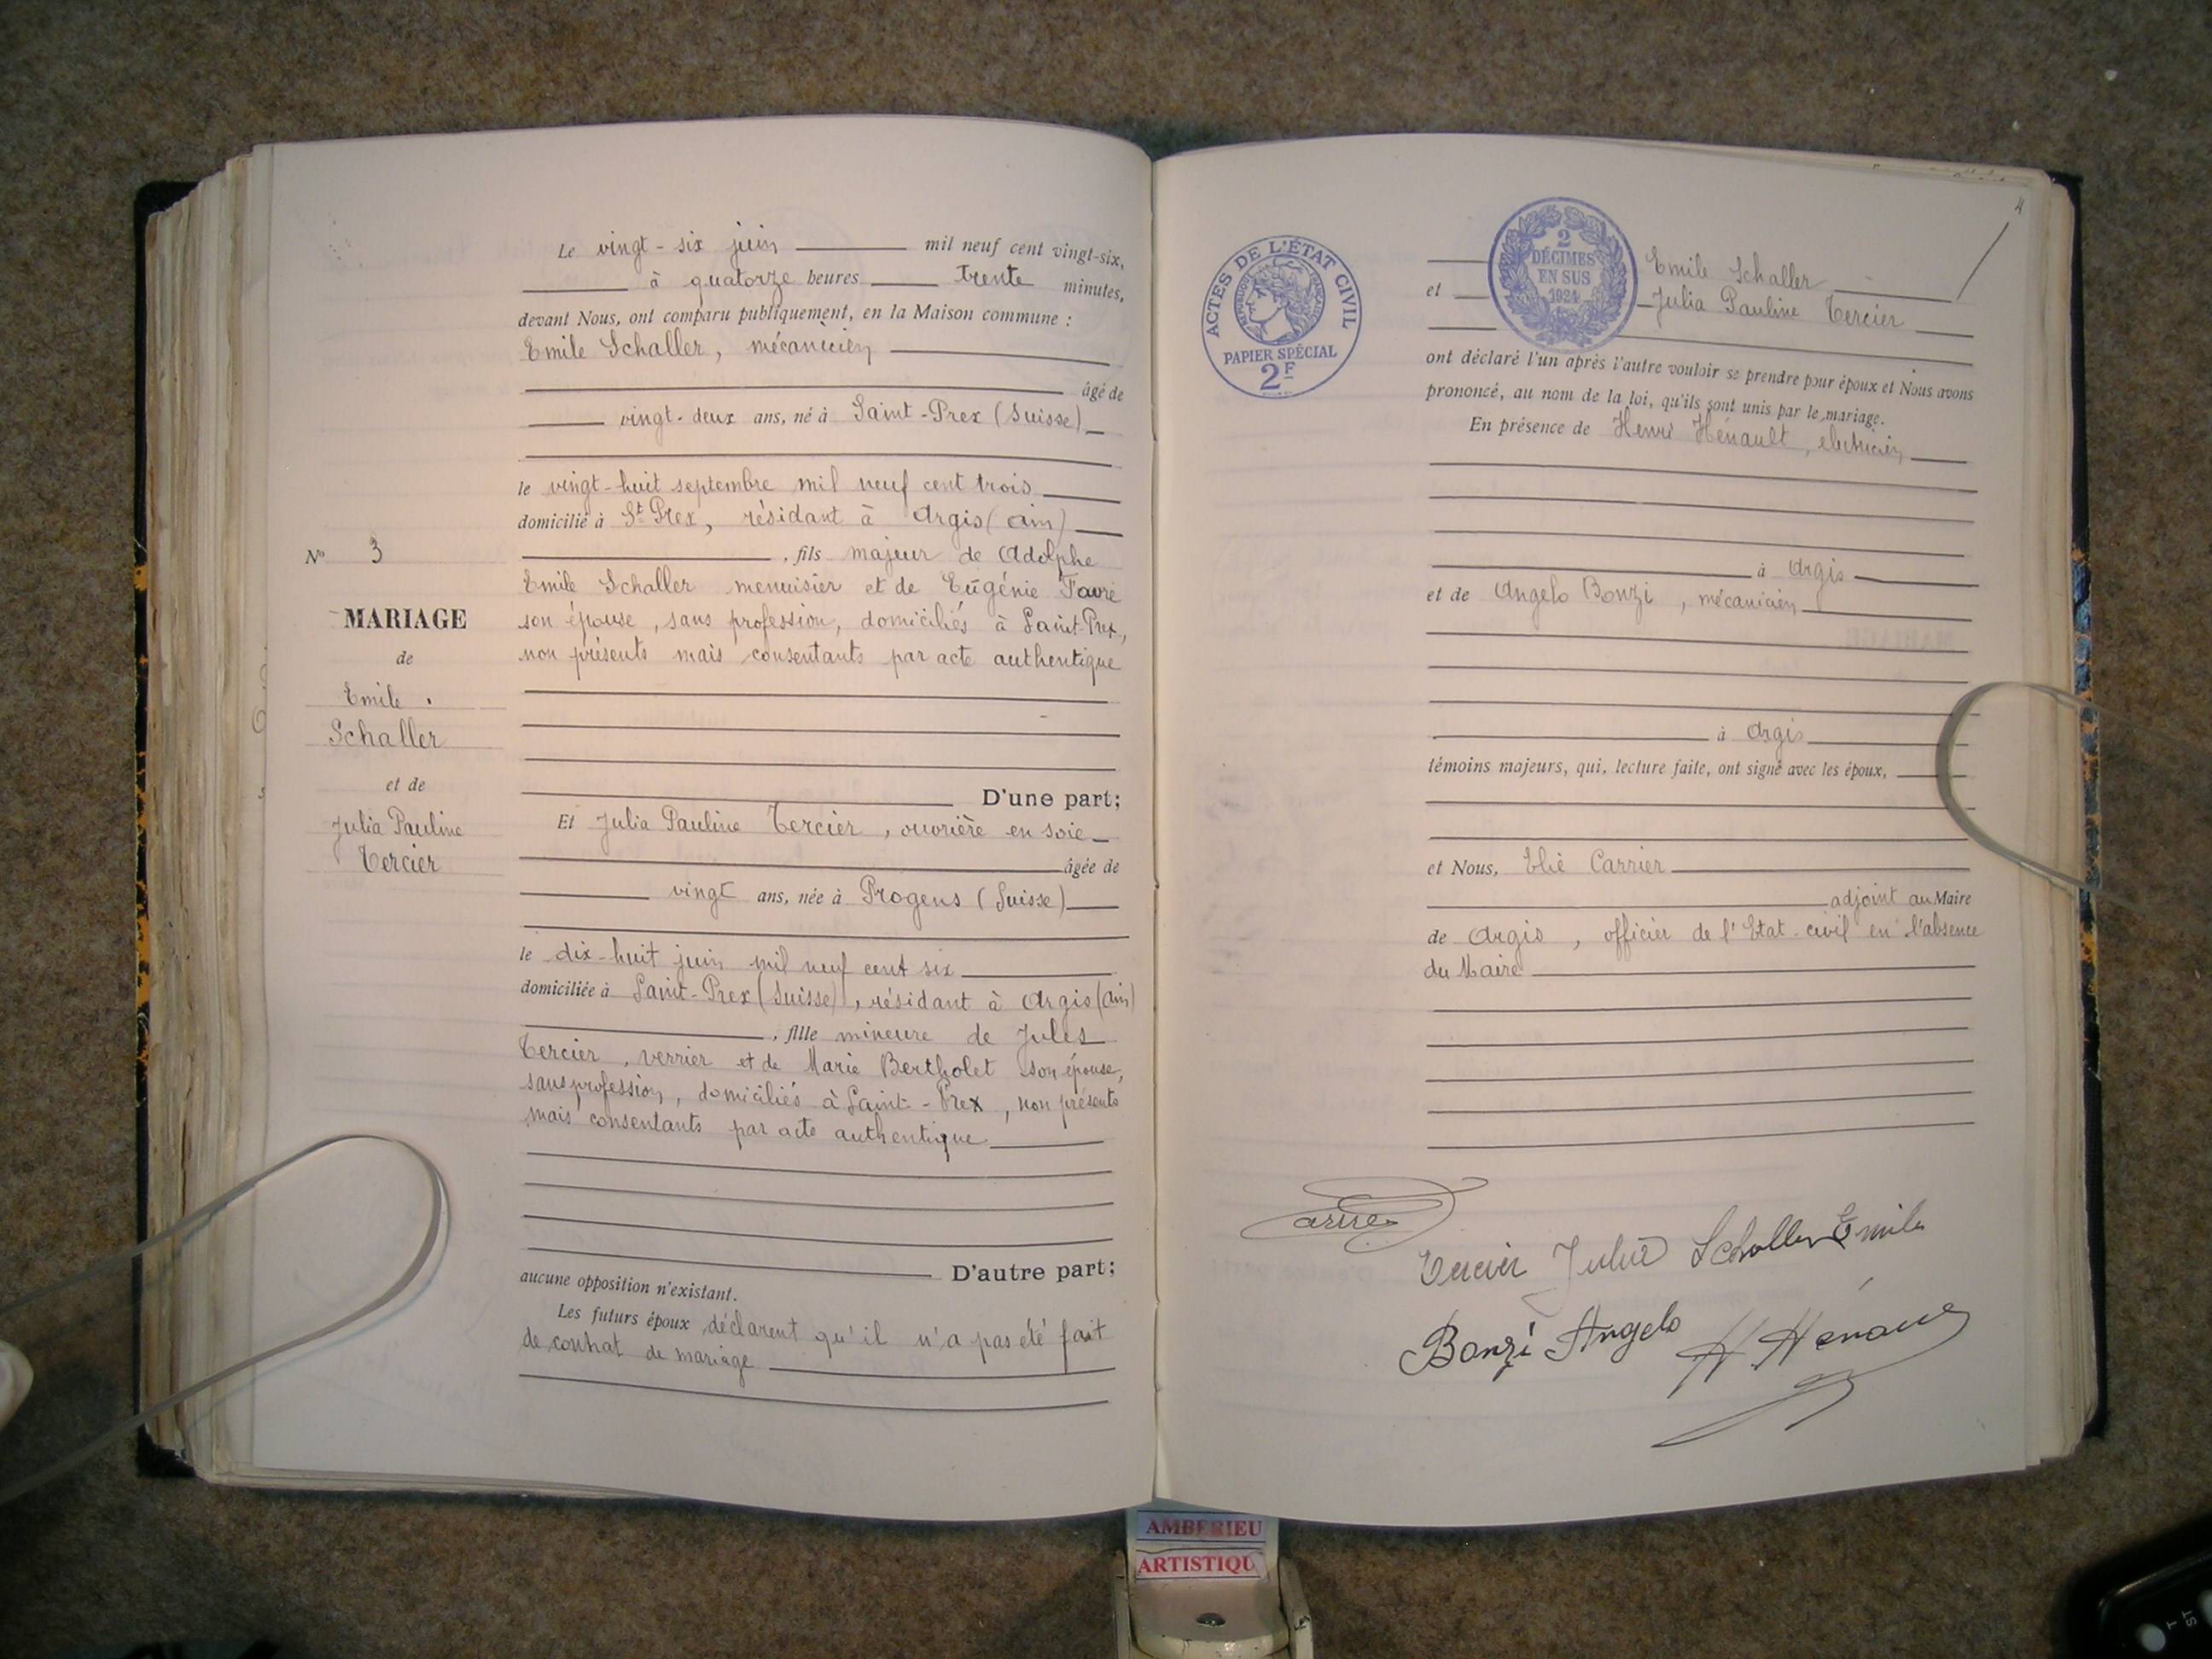 Le vingt-six juin mil neuf cent vingt-six,
à quatorze heures trente minutes,
devant Nous, ont comparu publiquement, en la Maison commune :
Emile Schaller, mécanicien
âgé de
vingt-deux ans, né à Saint-Prex (Suisse)
le vingt-huit septembre mil neuf cent trois
domicilié à St Prex, résidant à Argis (Ain)
, fils majeur de Adolphe
Emile Schaller menuisier et de Eugénie Favre
son épouse, sans profession, domiciliés à Saint-Prex,
non présents mais consentants par acte authentique
D'une part;
Nº 3
MARIAGE
de
Emile
Schaller
et de
Julia Pauline
Tercier
Et Julia Pauline Tercier, ouvrière en soie
âgée de
vingt ans, née à Progens (Suisse)
le dix-huit juin mil neuf cent six
domiciliée à Saint-Prex (Suisse), résidant à Argis (Ain)
, fille mineure de Jules
Tercier, verrier et de Marie Bertholet son épouse,
sans profession, domiciliés à Saint-Prex, non présents
mais consentants par acte authentique
D'autre part;
aucune opposition n'existant.
Les futurs époux déclarent qu'il n'a pas été fait
de contrat de mariage
4
ACTES DE L'ÉTAT CIVIL
RÉPUBLIQUE FRANÇAISE
PAPIER SPÉCIAL
2F
2
DÉCIMES
EN SUS
1924
Emile Schaller
et Julia Pauline Tercier
ont déclaré l'un après l'autre vouloir se prendre pour époux et Nous avons
prononcé, au nom de la loi, qu'ils sont unis par le mariage.
En présence de Henri Hénault, electricien
à Argis
et de Angelo Bonzi, mécanicien
à Argis
témoins majeurs, qui, lecture faite, ont signé avec les époux,
et Nous, Elie Carrier
adjoint au Maire
de Argis, officier de l'Etat-civil en l'absence
du Maire
Tercier Julia Schaller Emile
Bonzi Angelo H Hénault
AMBERIEU
ARTISTIQU